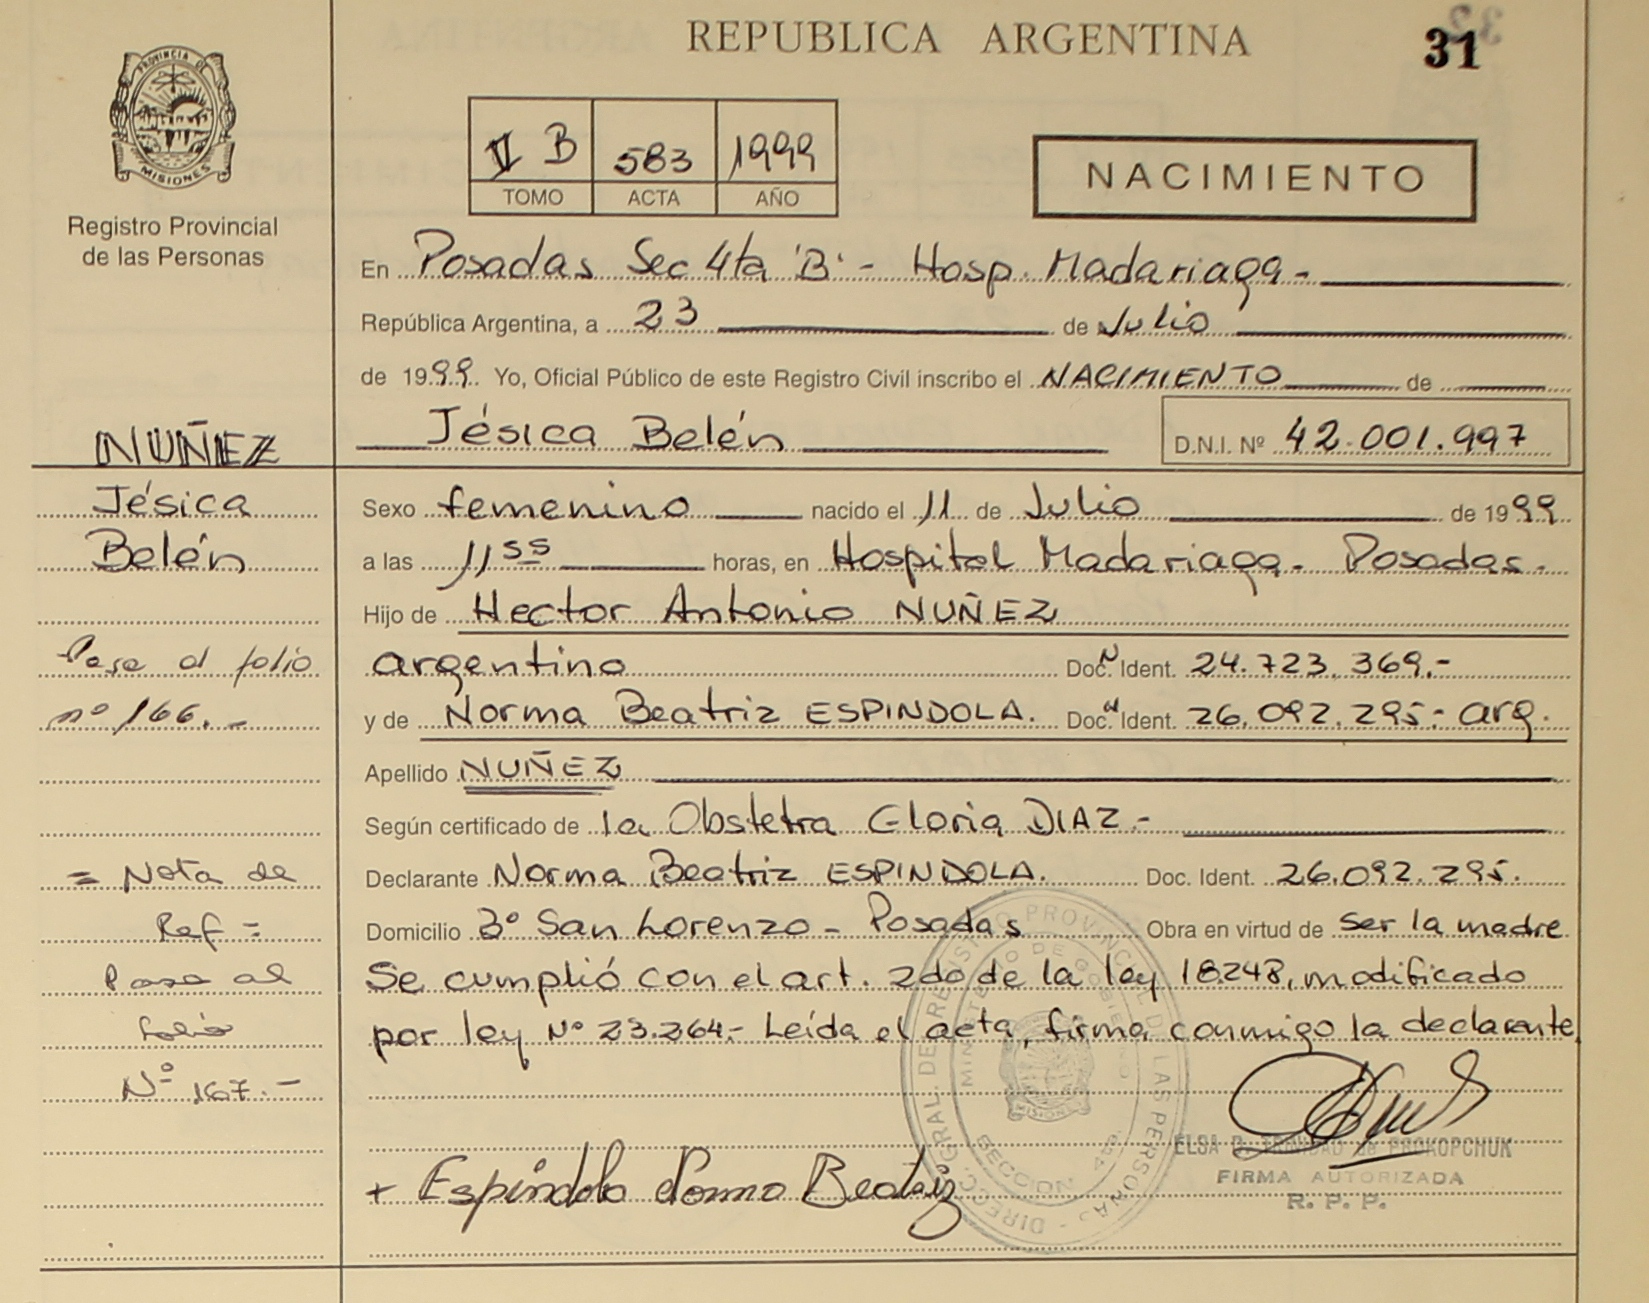 REPUBLICA ARGENTINA
31
PROVINCIA DE
MISIONES
Registro Provincial
de las Personas
II B 583 1999
TOMO ACTA AÑO
NACIMIENTO
En Posadas Sec 4ta "B" - Hosp. Madariaga-
República Argentina, a 23 de Julio
de 1999. Yo, Oficial Público de este Registro Civil inscribo el NACIMIENTO de
Jésica Belén
D.N.I. Nº 42.001.997
NUÑEZ
Jésica
Belén
Pase al folio
nº 166.-
= Nota de
Ref =
Pase al
folio
Nº 167.-
Sexo femenino nacido el 11 de Julio de 1999
a las 11 55 horas, en Hospital Madariaga - Posadas.
Hijo de Hector Antonio NUÑEZ
argentino Doc. N Ident. 24.723.369.-
y de Norma Beatriz ESPINDOLA. Doc. N Ident. 26.092.295.- arg.
Apellido NUÑEZ
Según certificado de la Obstetra Gloria DIAZ.-
Declarante Norma Beatriz ESPINDOLA. Doc. Ident. 26.092.295.
Domicilio Bº San Lorenzo - Posadas Obra en virtud de ser la madre
Se cumplió con el art. 2do de la ley 18.248, modificado
por ley Nº 23.264.- Leída el acta, firma conmigo la declarante
+ Espindola Norma Beatriz
ELSA PROKOPCHUK
FIRMA AUTORIZADA
R. P. P.
DIRECC. GRAL. DE REGISTRO PROVINCIAL DE LAS PERSONAS
MINISTERIO DE GOBIERNO
MISIONES
SECCION 4ta